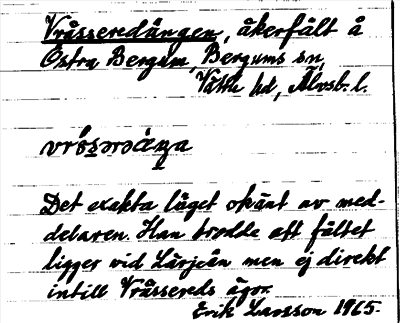 Vråsseredängen, åkerfält å
Östra Bergum, Bergums sn,
Vättle hd, Älvsb. l.
Det exakta läget okänt av med-
delaren. Han trodde att fältet
ligger vid Lärjeån men ej direkt
intill Vråssereds ägor.
Erik Larsson 1965.